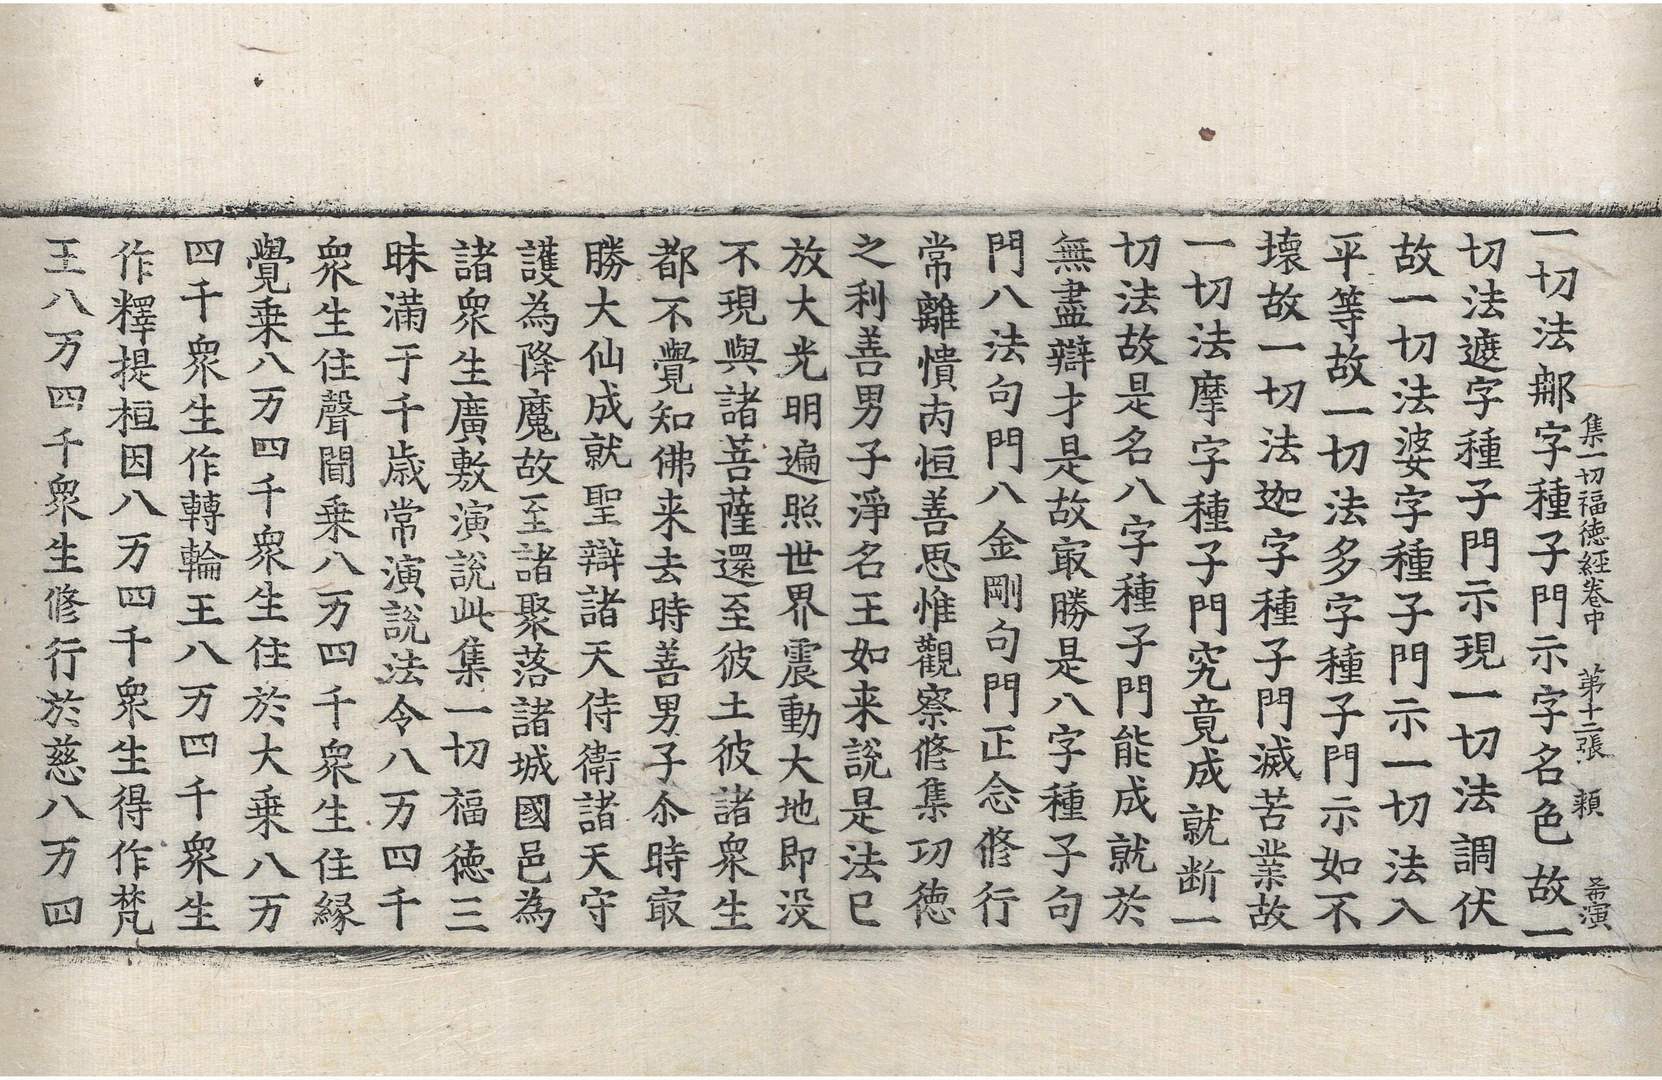 集一切福德經卷中　第十二張　賴　㝵演
一切法郍字種子門示字名色故一
切法遮字種子門示現一切法調伏
故一切法婆字種子門示一切法入
平等故一切法多字種子門示如不
壊故一切法迦字種子門滅苦業故
一切法摩字種子門究竟成就断一
切法故是名八字種子門能成就於
無盡辯才是故㝡勝是八字種子句
門八法句門八金剛句門正念修行
常離憒内恒善思惟觀察修集功德
之利善男子淨名王如来說是法已
放大光明遍照世界震動大地即没
不現與諸菩薩還至彼土彼諸衆生
都不覺知佛来去時善男子尒時㝡
勝大仙成就聖辯諸天侍衛諸天守
護為降魔故至諸聚落諸城國邑為
諸衆生廣敷演說此集一切福德三
昧滿于千歲常演說法令八万四千
衆生住聲聞乗八万四千衆生住緣
覺乗八万四千衆生住於大乗八万
四千衆生作轉輪王八万四千衆生
作釋提桓因八万四千衆生得作梵
王八万四千衆生修行於慈八万四